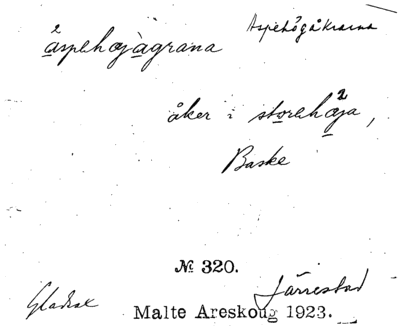 åspehøjagrana Aspehögåkrarna
åker i storehøja,
Baske
№ 320.
Gladsax Järrestad
Malte Areskoug 1923.